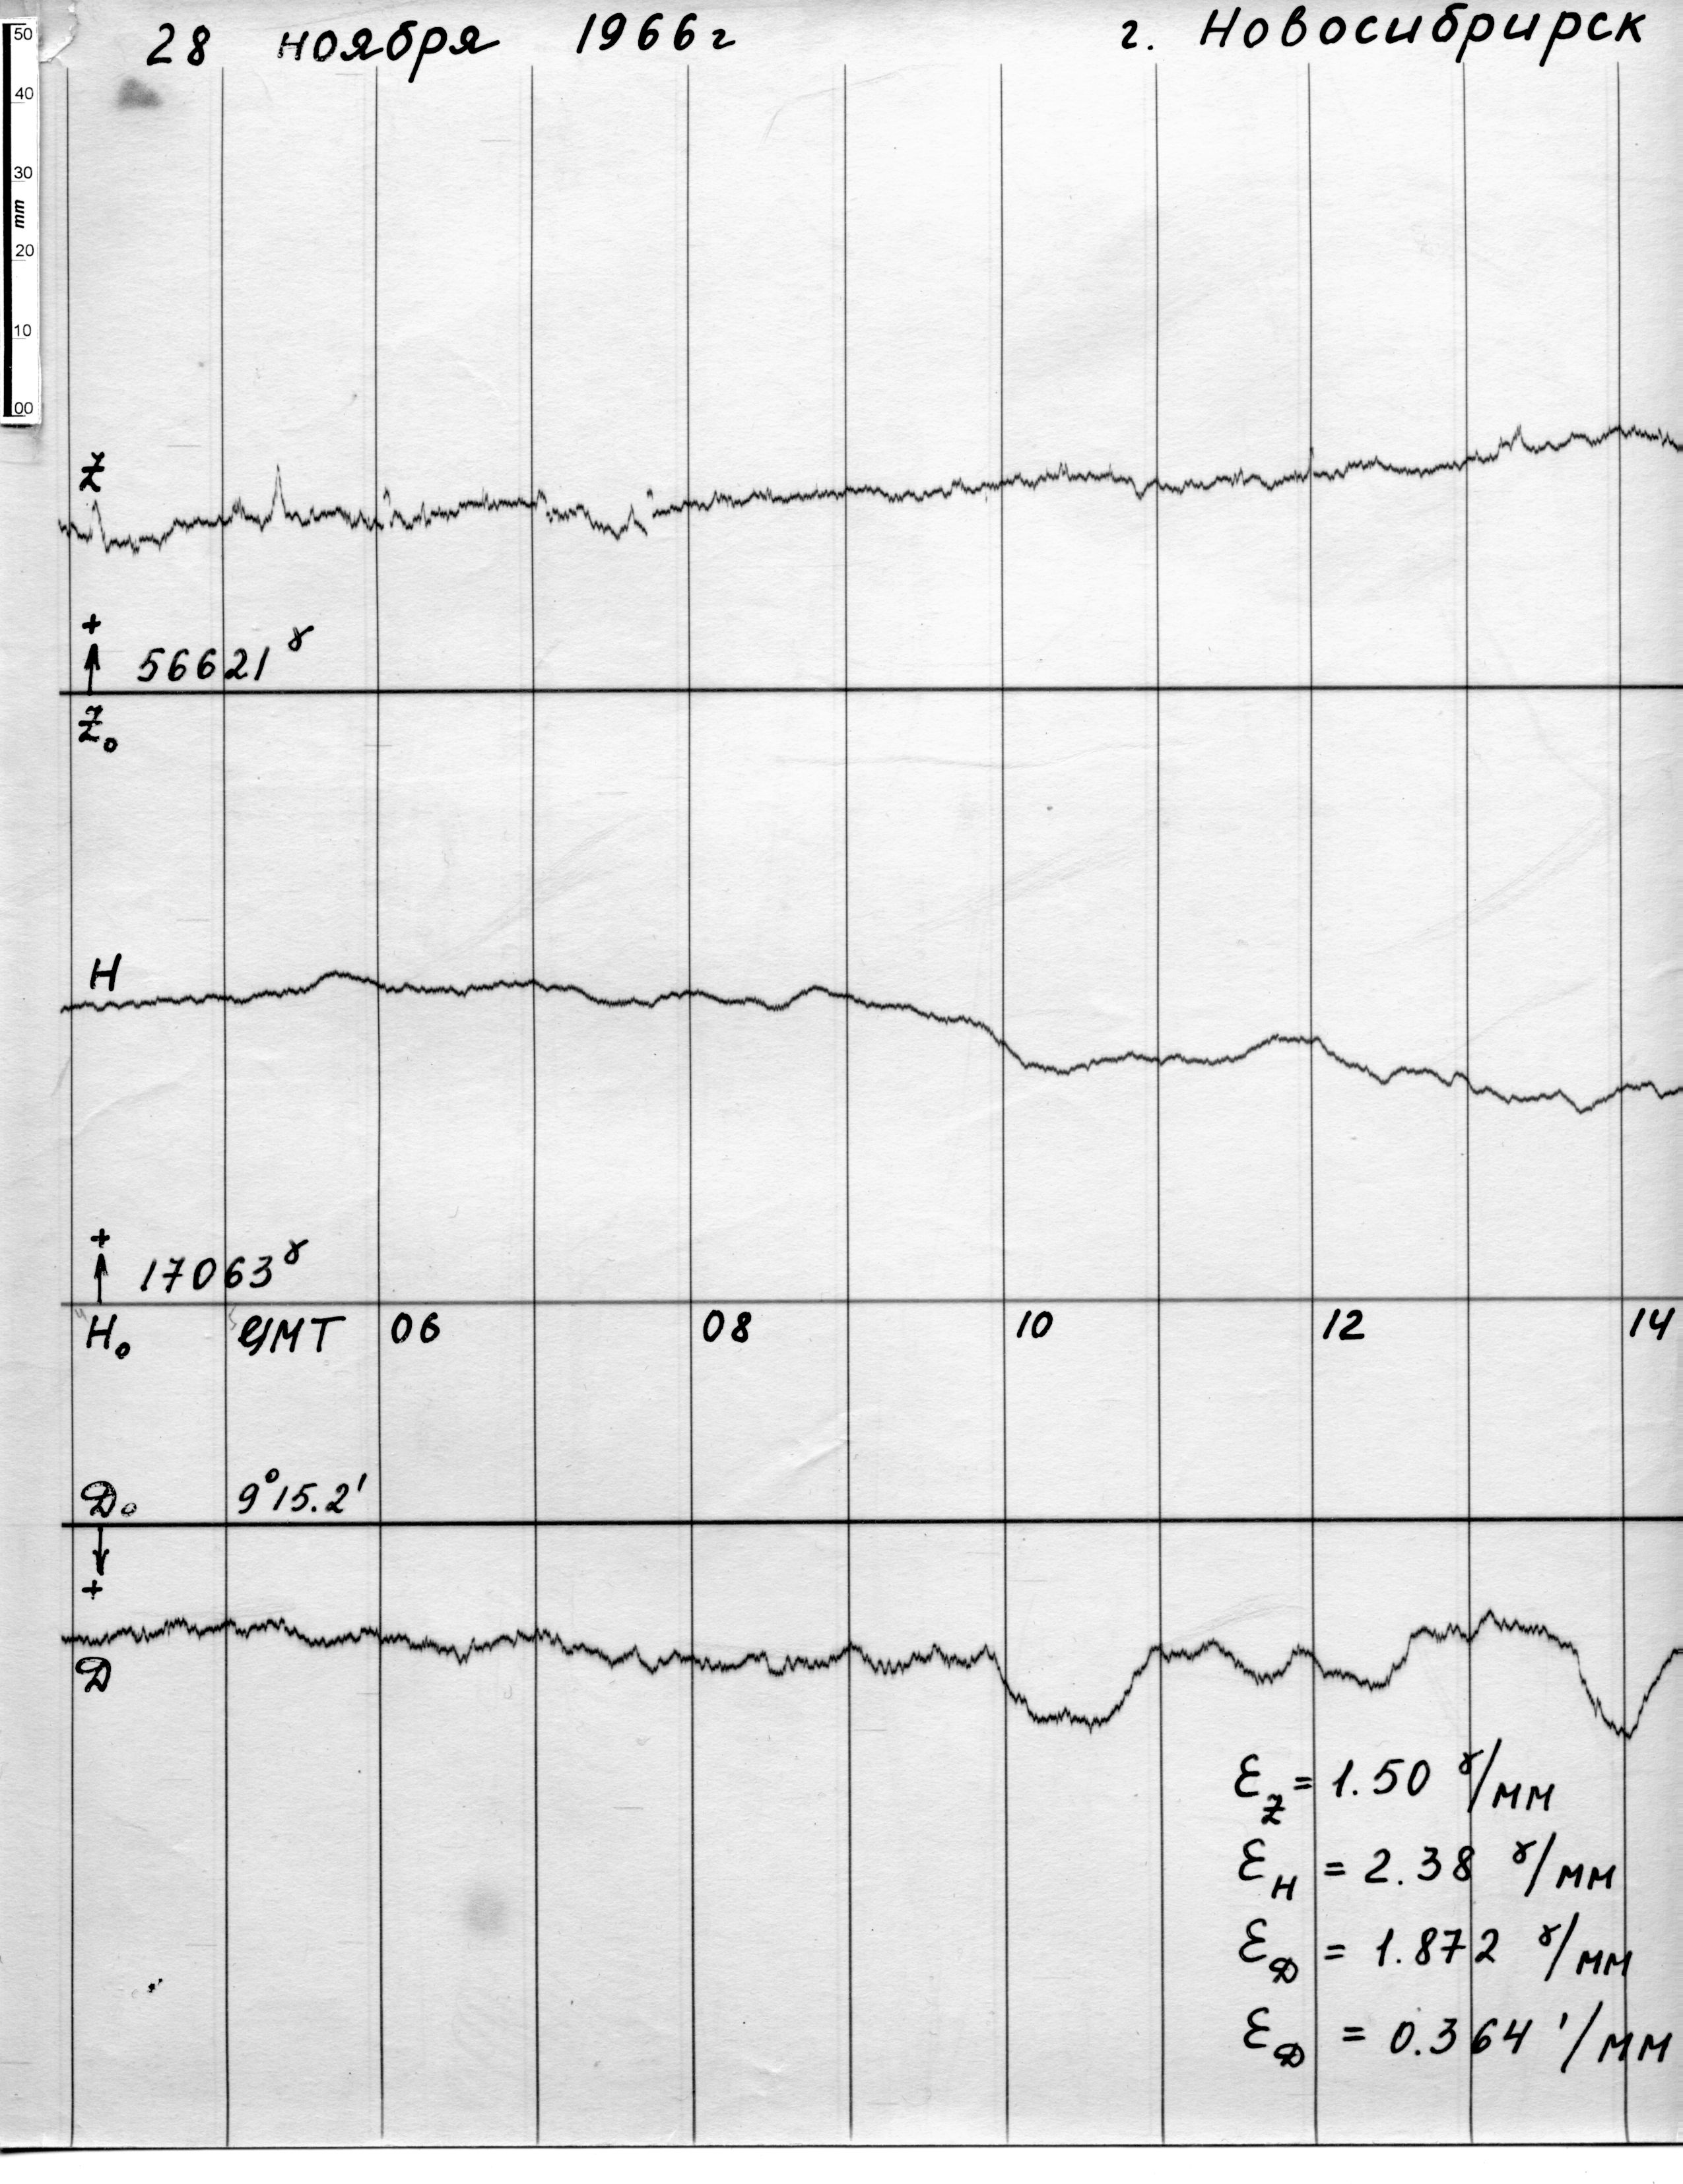 28 ноября 1966г г. Новосибрирск
50
40
30
mm
20
10
00
Z
+
56621 γ
Z₀
H
+
17063 γ
H₀ GMT 06 08 10 12 14
D₀ 9°15.2'
+
D
Ɛ_Z = 1.50 γ/мм
Ɛ_H = 2.38 γ/мм
Ɛ_D = 1.872 γ/мм
Ɛ_D = 0.364 '/мм